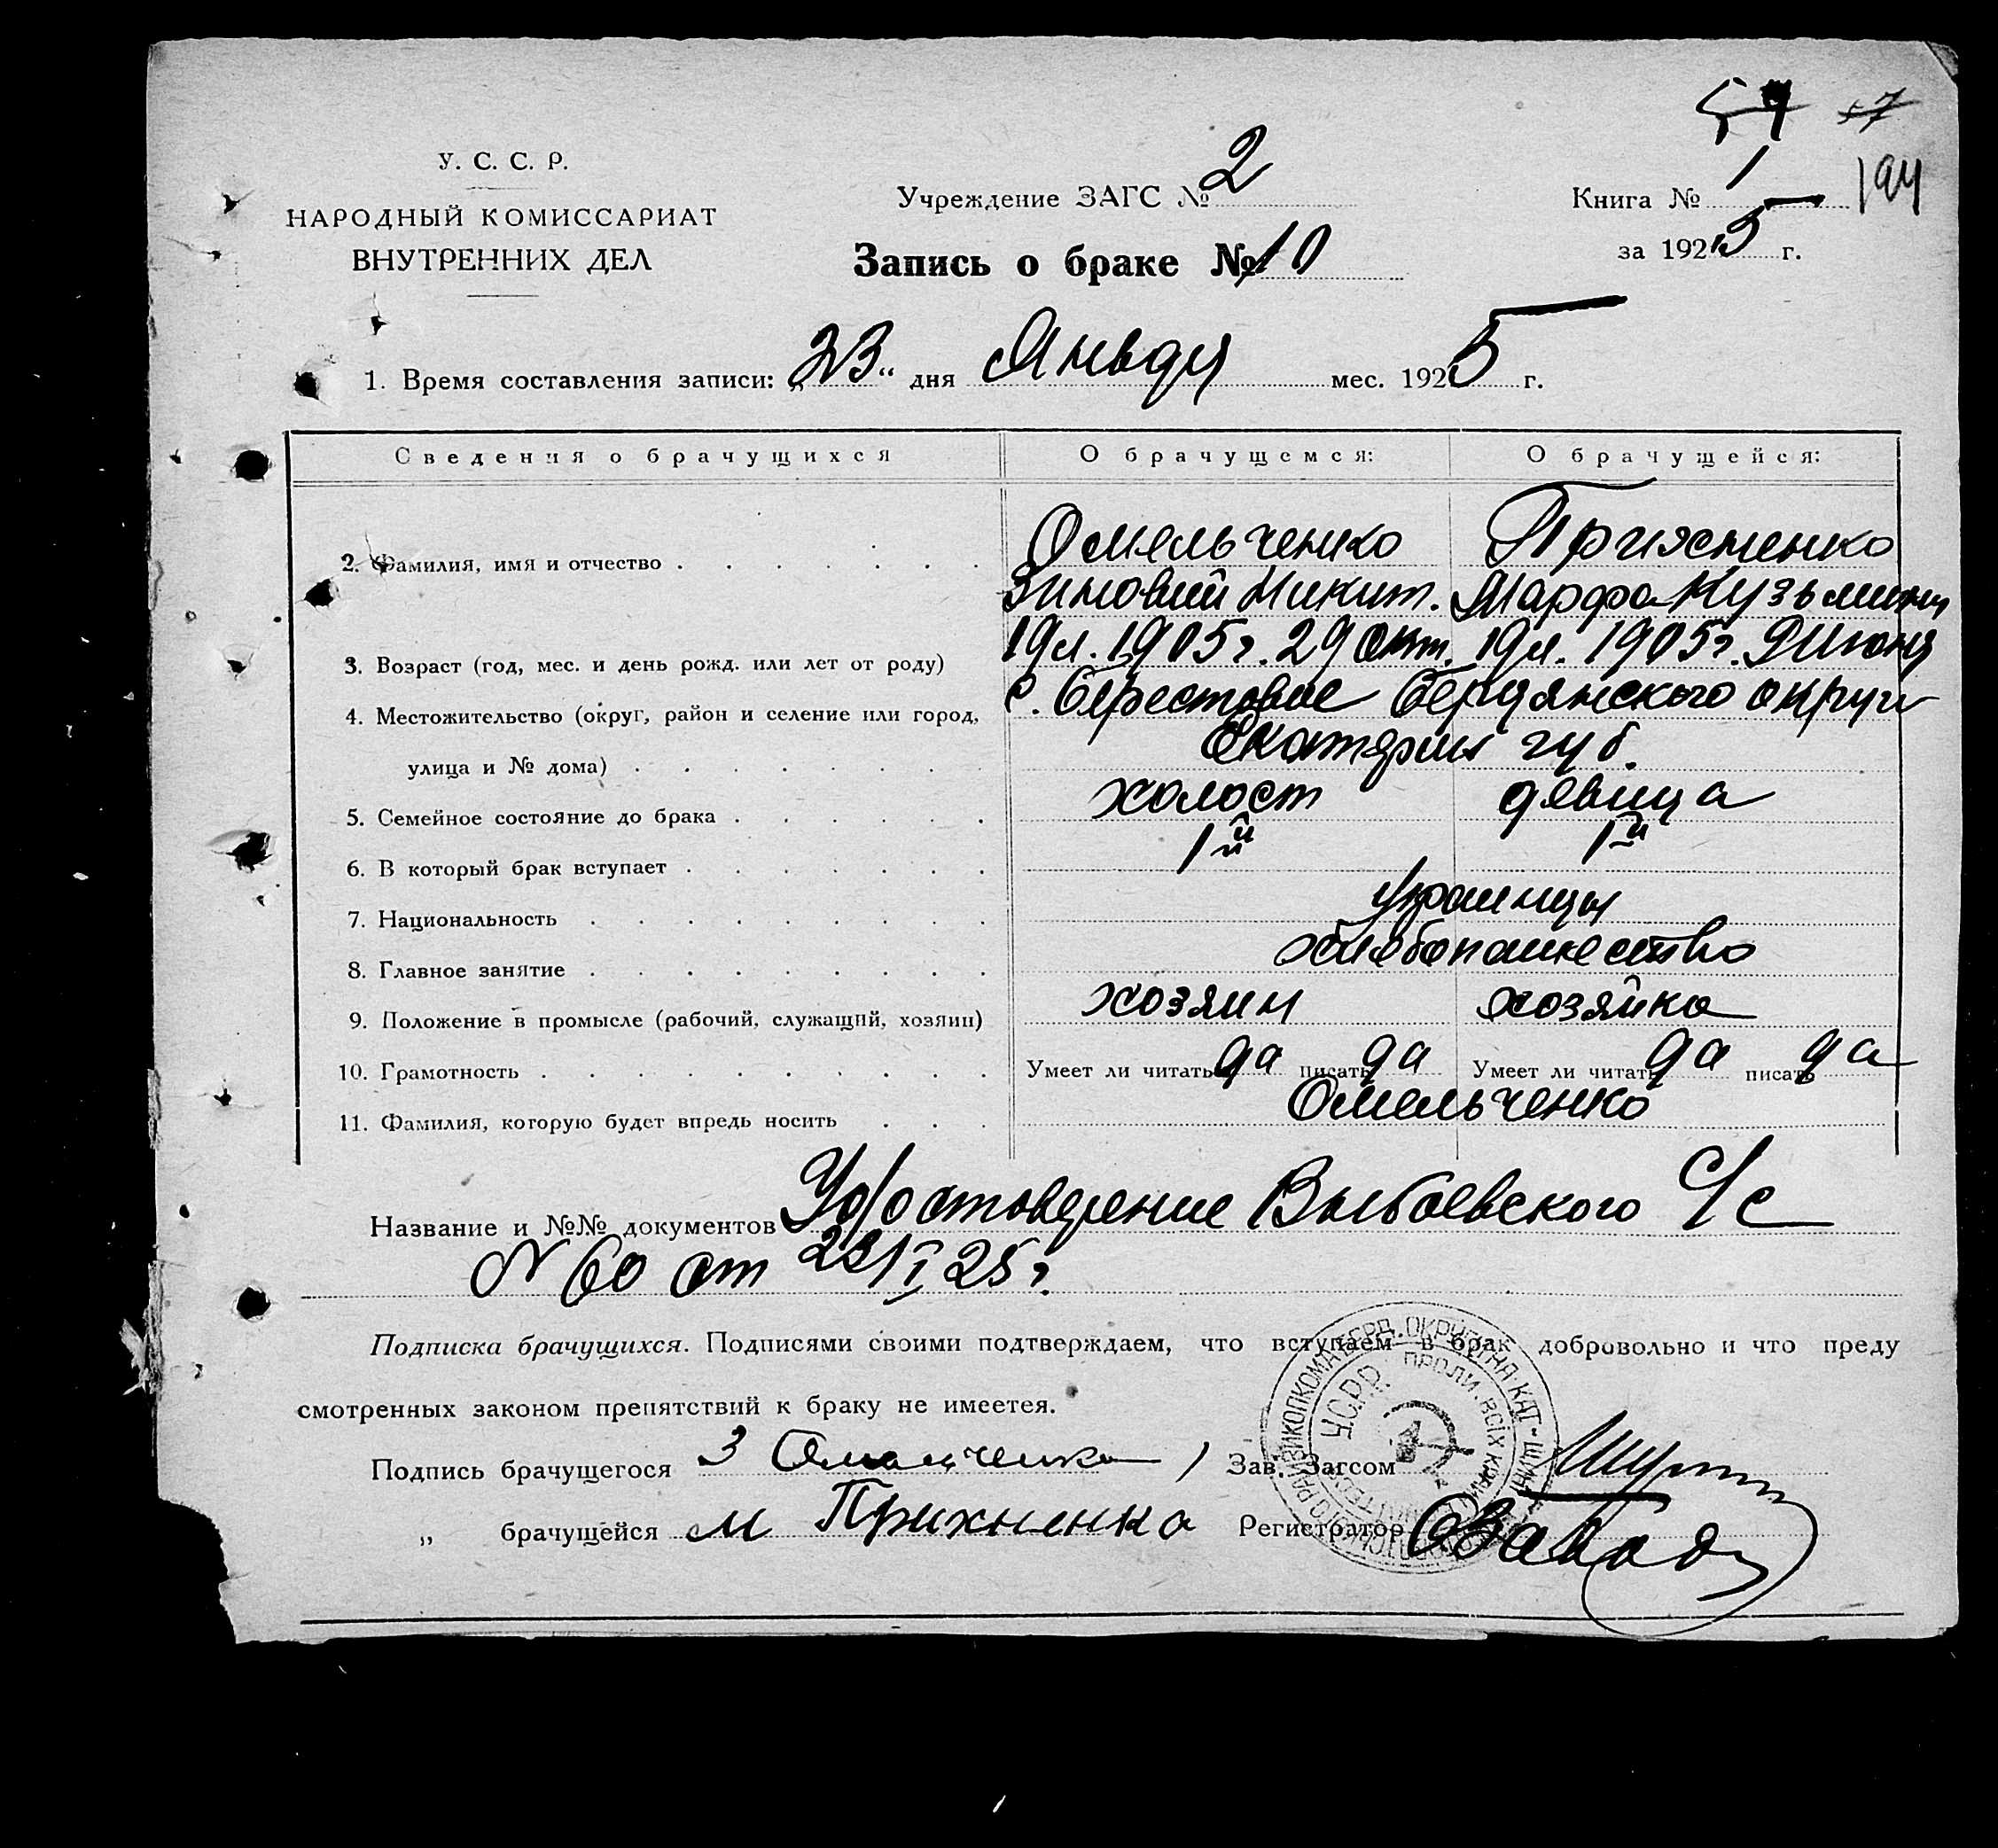 57 57
У. С. С. Р.
НАРОДНЫЙ КОМИССАРИАТ
ВНУТРЕННИХ ДЕЛ
Учреждение ЗАГС № 2
Книга № 1 194
Запись о браке № 10
за 1925 г.
1. Время составления записи: „23“ дня Января мес. 1925 г.
Сведения о брачущихся О брачущемся: О брачущейся:
2. Фамилия, имя и отчество Омельченко
Зиновий Никит. Марфа Кузьмин
3. Возраст (год, мес. и день рожд. или лет от роду) 19 л. 1905 г. 29 Окт. 19 л. 1905 г. Июня
4. Местожительство (округ, район и селение или город, с. Берестовое Бердянского округи
улица и № дома) Екатерин губ.
5. Семейное состояние до брака холост девица
6. В который брак вступает 1й 1й
7. Национальность Украинцы
8. Главное занятие хлебопашество
9. Положение в промысле (рабочий, служащий, хозяин) хозяин хозяйка
10. Грамотность Умеет ли читать да писать да Умеет ли читать да писать да
11. Фамилия, которую будет впредь носить Омельченко
Название и №№ документов Удостоверение С/с
N 60 от 23/I 25 г.
Подписка брачущихся. Подписями своими подтверждаем, что вступаем в брак добровольно и что преду
смотренных законом препятствий к браку не имеется.
Подпись брачущегося З Омельченко Зав. Загсом
„ брачущейся М Регистратор
У.С.Р.Р. ПРОЛ. ВСІХ КРАЇН